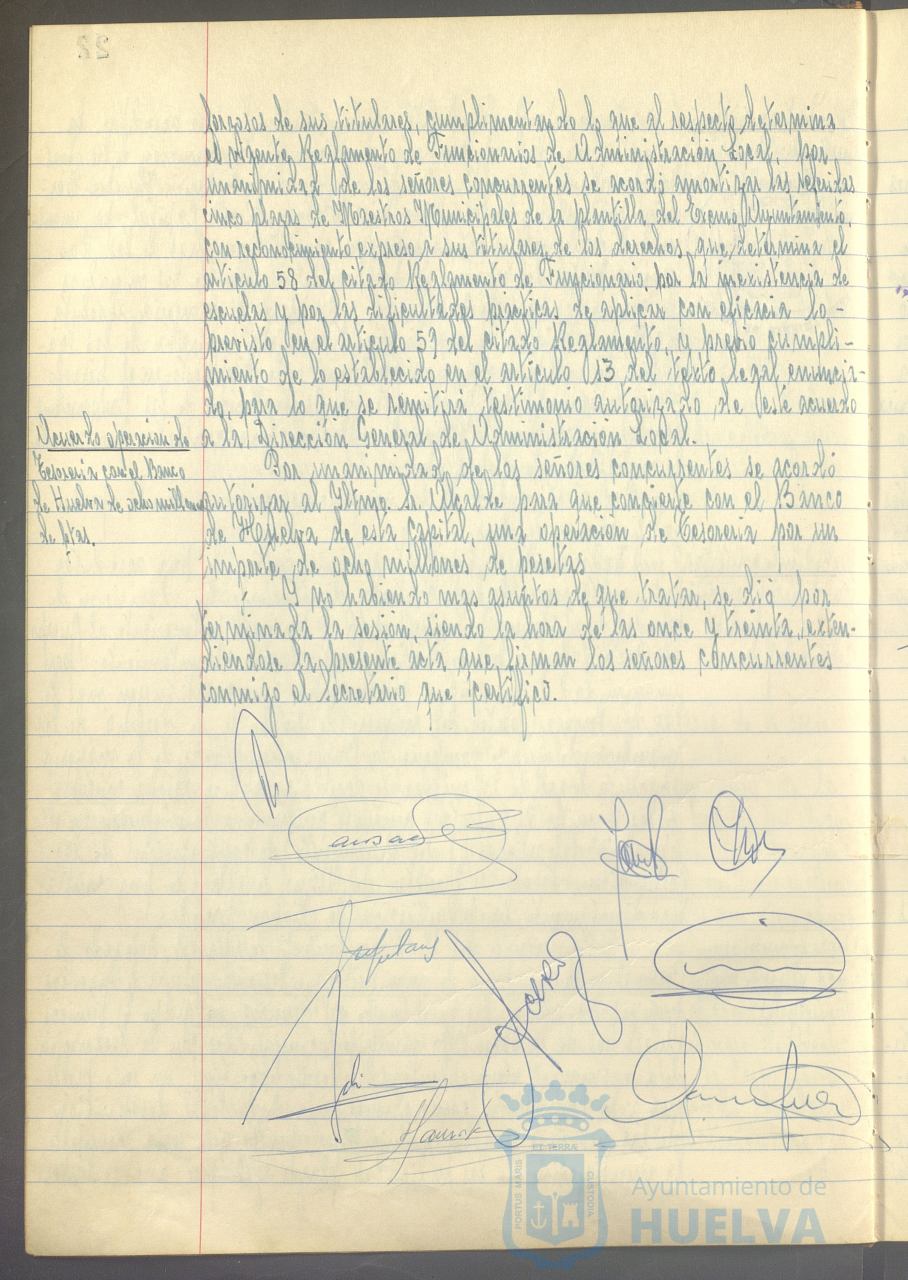 forzosos de sus titulares, cumplimentando lo que al respecto determina
el vigente Reglamento de Funcionarios de Administración Local, por
unanimidad de los señores concurrentes se acordó amortizar las referidas
cinco plazas de Maestros Municipales de la plantilla del Excmo. Ayuntamiento,
con reconocimiento expreso a sus titulares de los derechos que determina el
artículo 58 del citado Reglamento de Funcionario, por la inexistencia de
escuelas y por las dificultades prácticas de aplicar con eficacia lo
previsto en el artículo 59 del citado Reglamento, y previo cumpli-
miento de lo establecido en el artículo 13 del texto legal enuncia-
do, para lo que se remitirá testimonio autorizado de este acuerdo
a la Dirección General de Administración Local.
Acuerdo operación de
Tesorería con el Banco
de Huelva de ocho millones
de ptas.
Por unanimidad de los señores concurrentes se acordó
autorizar al Iltmo. Sr. Alcalde para que concierte con el Banco
de Huelva de esta capital, una operación de Tesorería por un
importe de ocho millones de pesetas
Y no habiendo mas asuntos de que tratar, se dió por
terminada la sesión, siendo la hora de las once y treinta, exten-
diendose la presente acta que firman los señores concurrentes
conmigo el Secretario que certifico.
ET TERRÆ
PORTUS MARIS
CUSTODIA
Ayuntamiento de
HUELVA